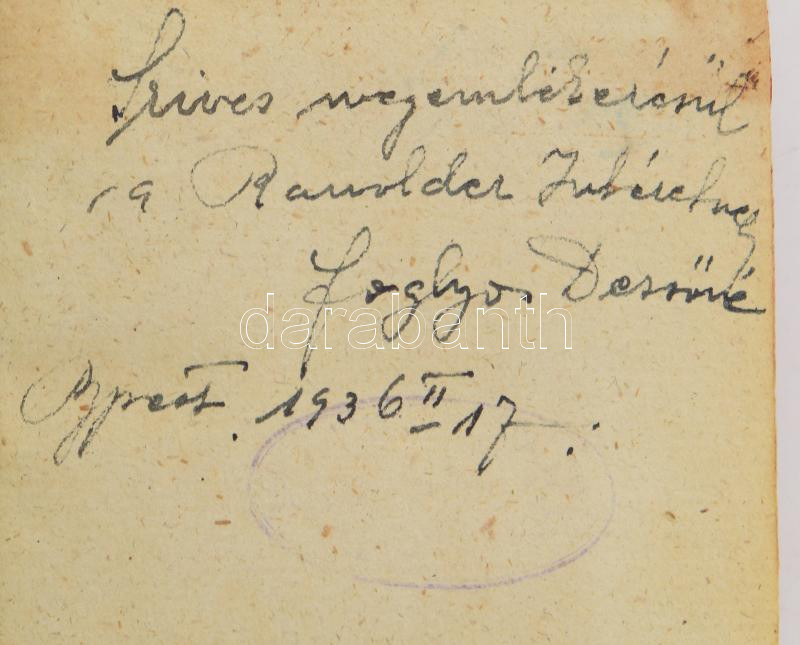 Szives megemlékezésül
a Ranolder Intézetnek
Foglyos Dezsőné
Bpest. 1936 II 17.
darabanth